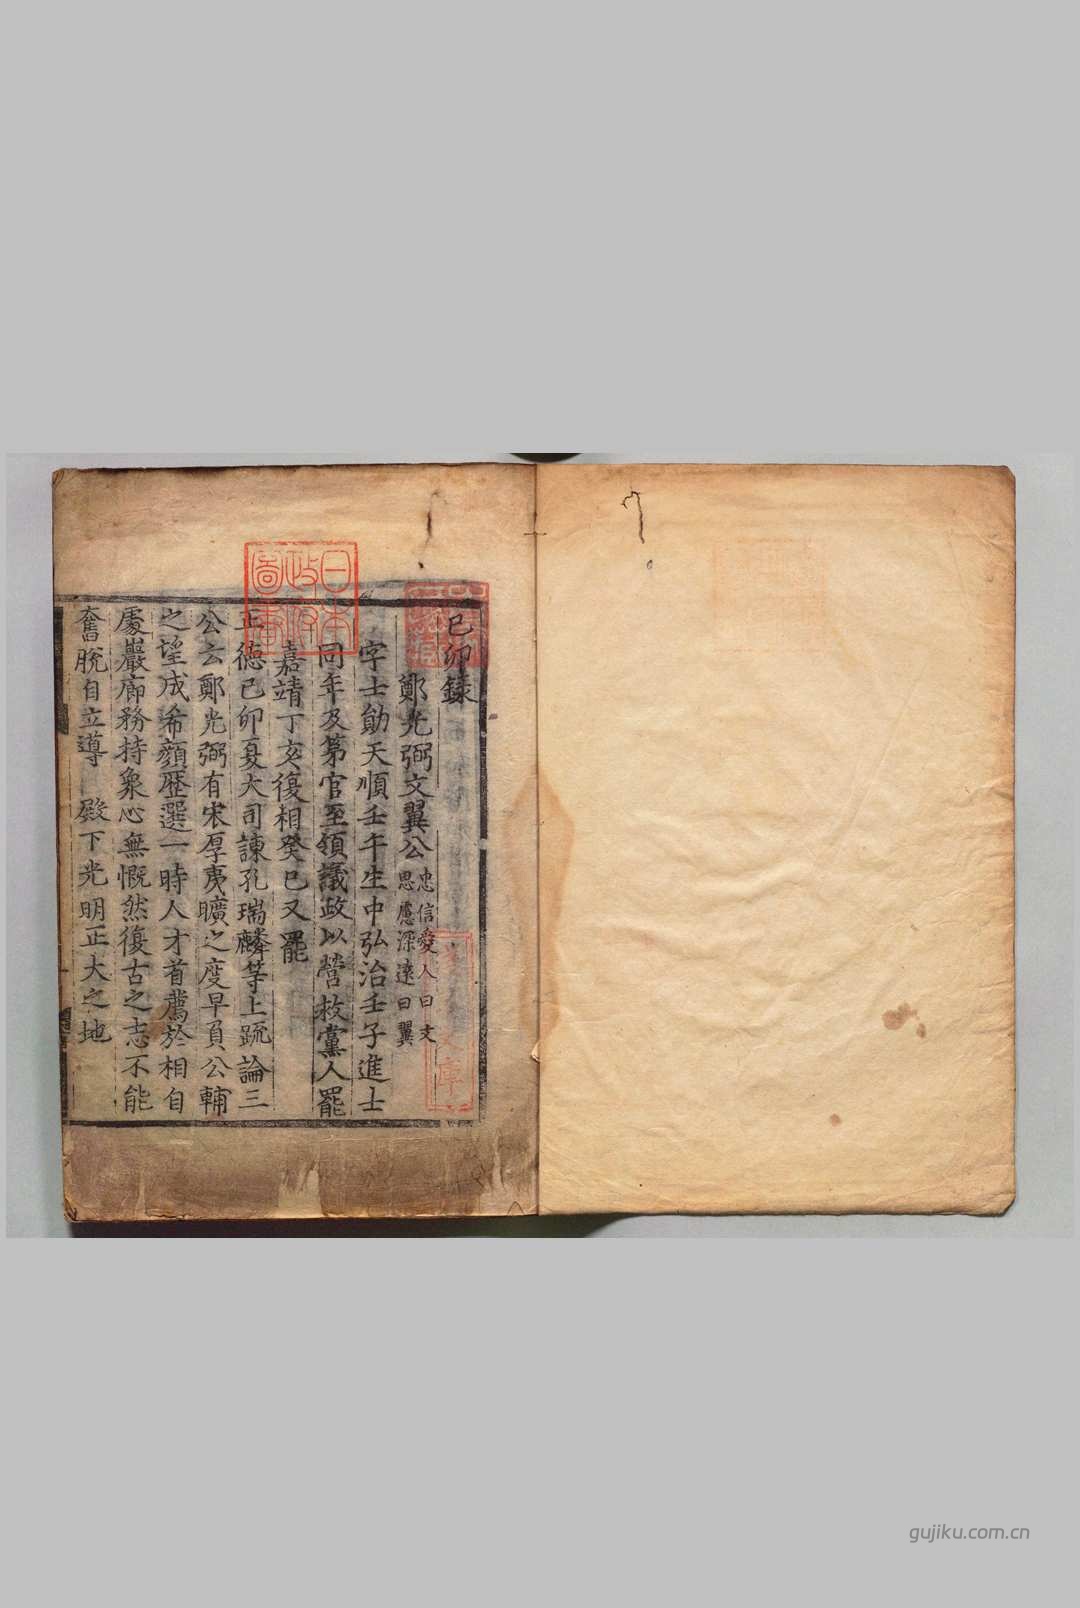 己卯錄
鄭光弼文翼公 忠信愛人曰文 思慮深遠曰翼
字士勛天順壬午生中弘治壬子進士
同年及第官至領議政以營救黨人罷
嘉靖丁亥復相癸巳又罷
正德己卯夏大司諫孔瑞麟等上疏論三
公云鄭光弼有宋厚夷曠之度早負公輔
之望成希顔歷選一時人才首薦於相自
處巖廊務持衆心無慨然復古之志不能
奮脫自立導 殿下光明正大之地
日本
政府
圖書
文庫
gujiku.com.cn